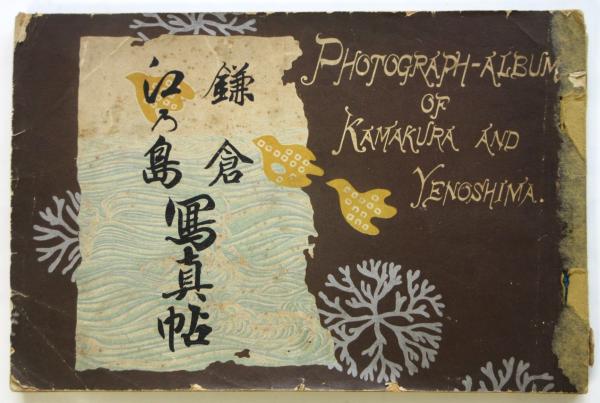 鎌倉
江乃島
寫真帖
PHOTOGRAPH-ALBUM
OF
KAMAKURA AND
YENOSHIMA.